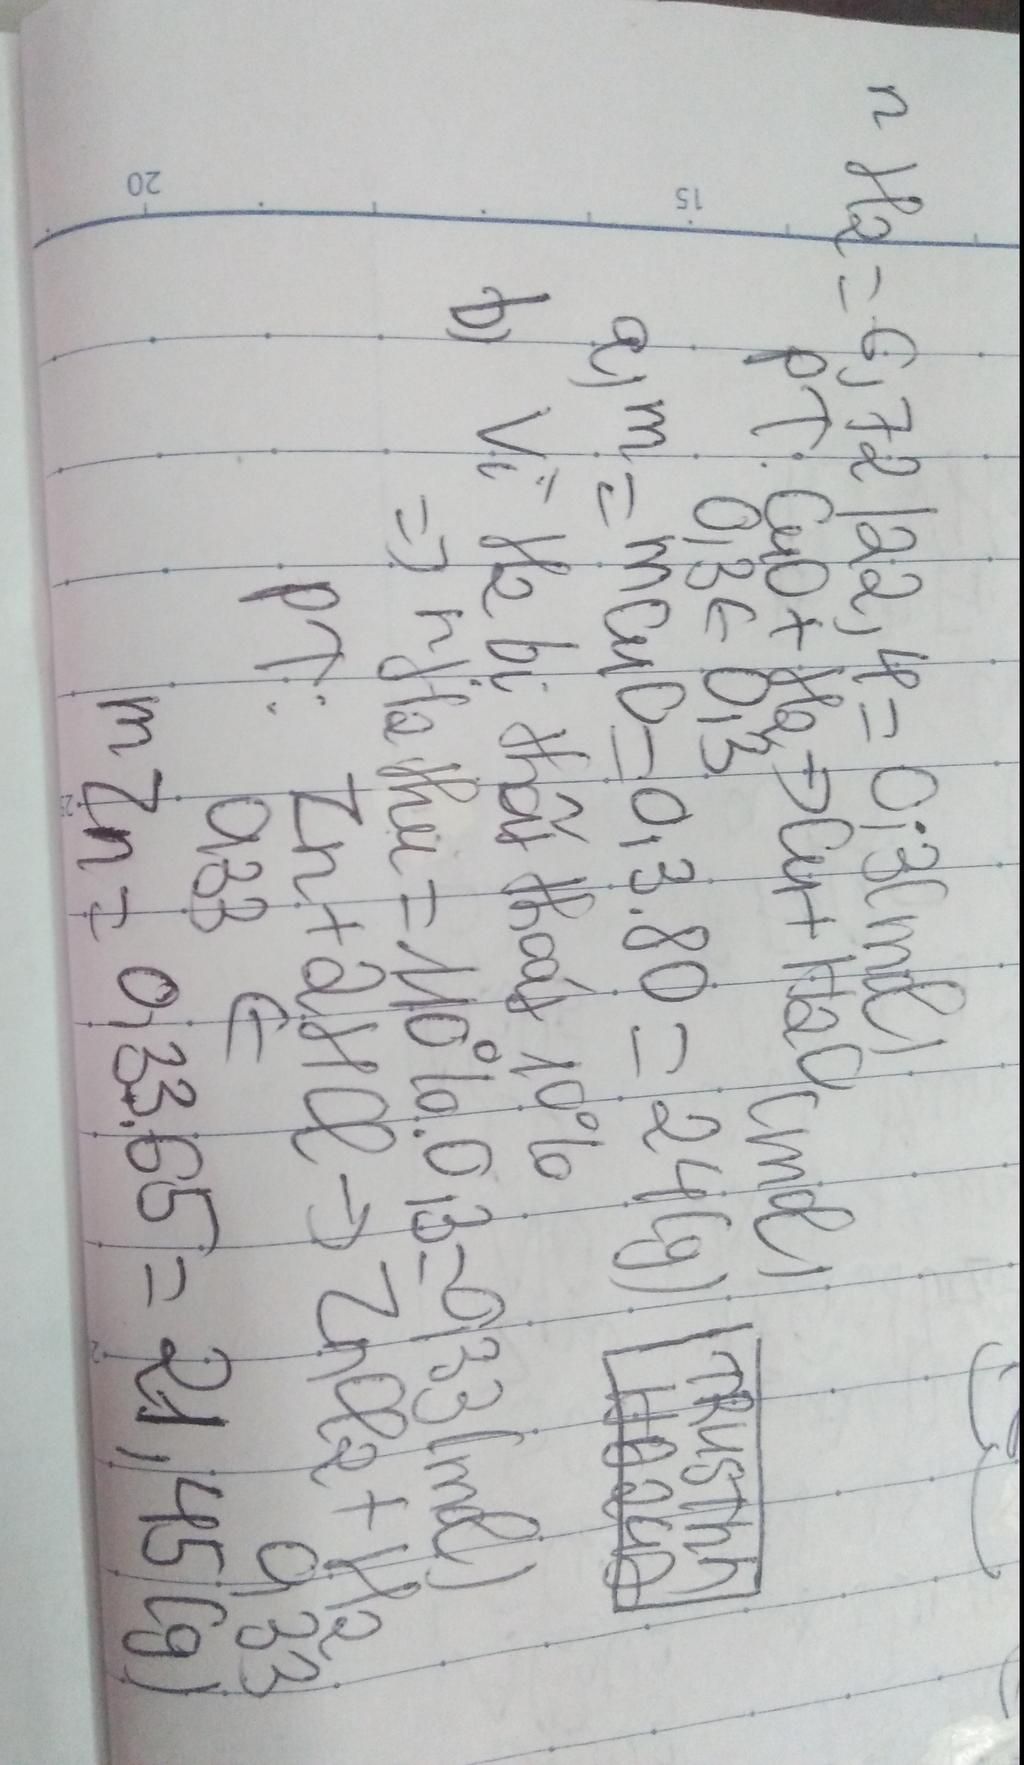 n H2 = 6,72/22,4 = 0,3(mol)
PT: CuO + H2 → Cu + H2O (mol)
0,3 ← 0,3
a, m = mCuO = 0,3.80 = 24(g)
b) Vì H2 bị thất thoát 10%
=> nH2 thu = 110%.0,3 = 0,33(mol)
PT: Zn + 2HCl → ZnCl2 + H2
0,33 ← 0,33
m Zn = 0,33.65 = 21,45(g)
TRUSThh
20
15